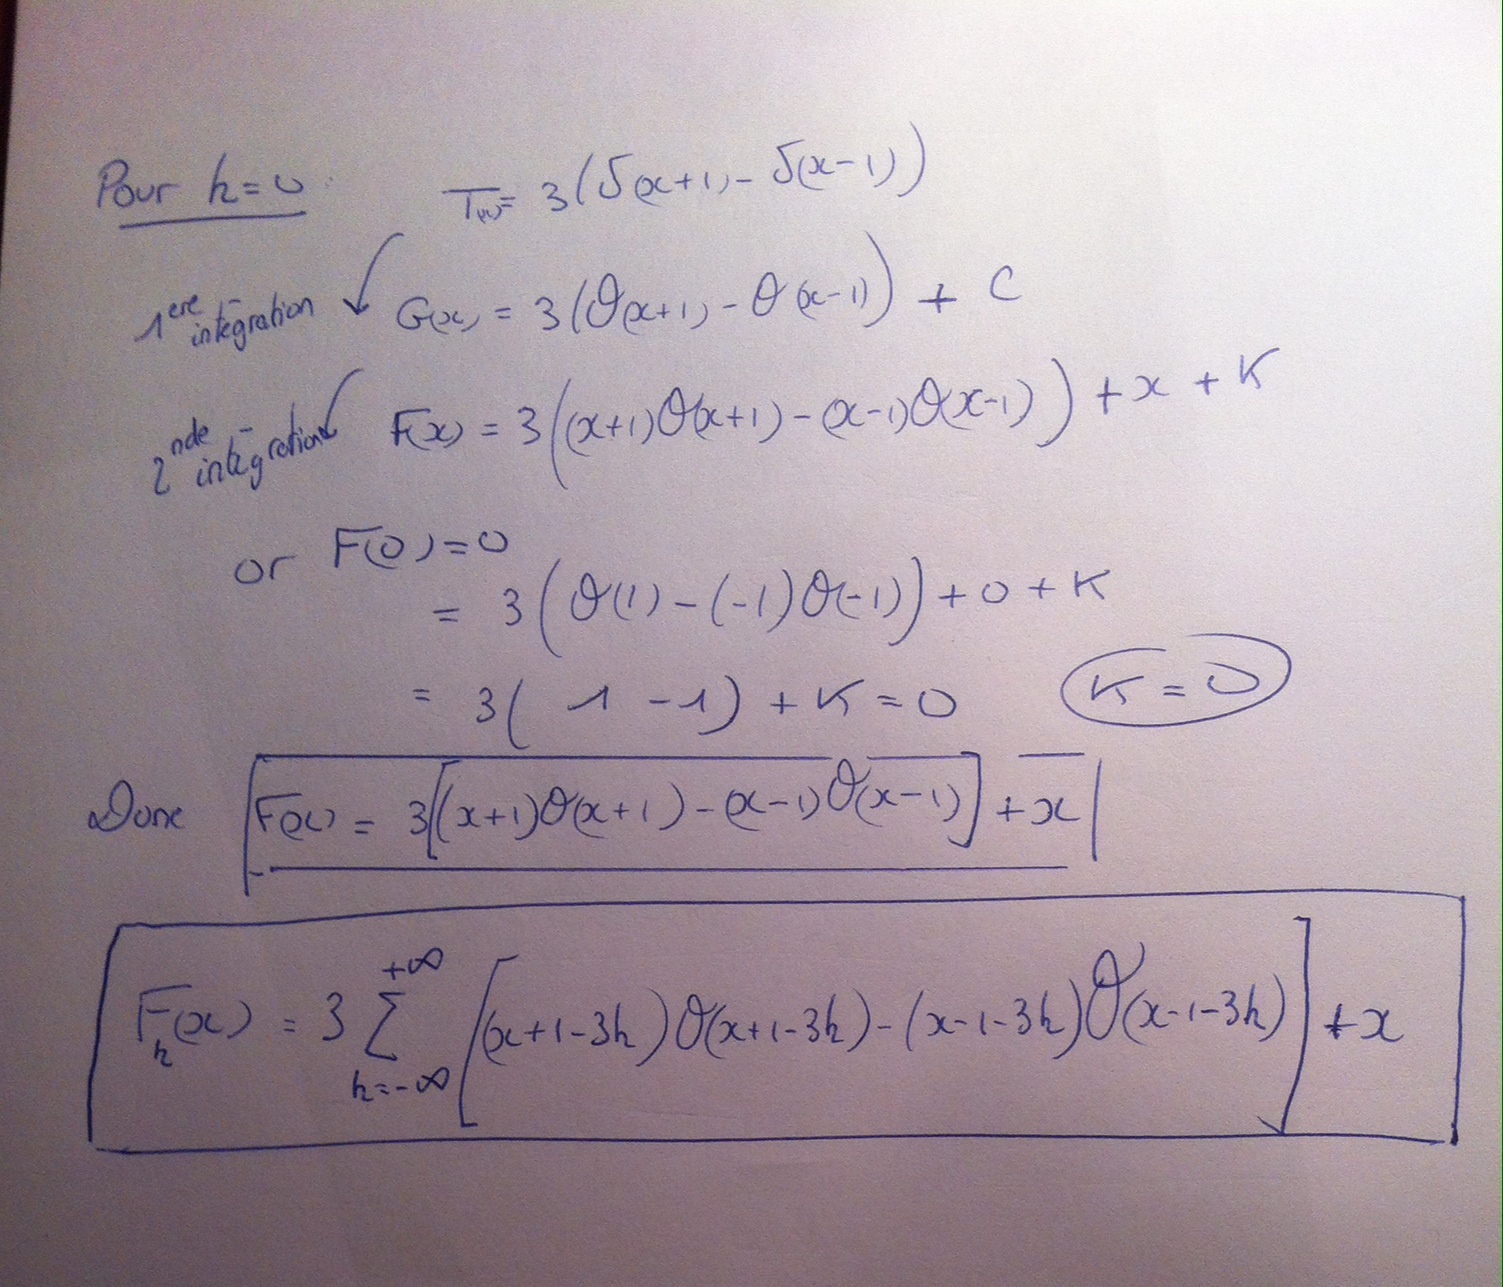 Pour k=0 : T(x)= 3(δ(x+1)-δ(x-1))
1ere intégration G(x) = 3(θ(x+1)-θ(x-1)) + C
2nde intégration F(x) = 3((x+1)θ(x+1)-(x-1)θ(x-1)) + x + K
or F(0)=0
= 3(θ(1)-(-1)θ(-1)) + 0 + K
= 3( 1 -1) + K = 0 K = 0
Donc F(x) = 3[(x+1)θ(x+1)-(x-1)θ(x-1)] + x
+∞
F(x) = 3 Σ [(x+1-3k)θ(x+1-3k)-(x-1-3k)θ(x-1-3k)] + x
k k=-∞